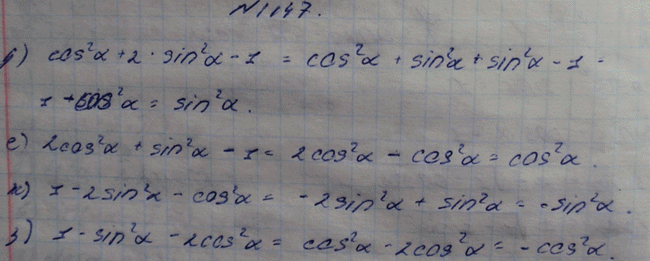 N1147.
б) cos²α + 2 · sin²α - 1 = cos²α + sin²α + sin²α - 1 -
1 + cos²α = sin²α.
е) 2cos²α + sin²α - 1 = 2cos²α - cos²α = cos²α.
ж) 1 - 2sin²α - cos²α = -2sin²α + sin²α = -sin²α.
з) 1 - sin²α - 2cos²α = cos²α - 2cos²α = -cos²α.